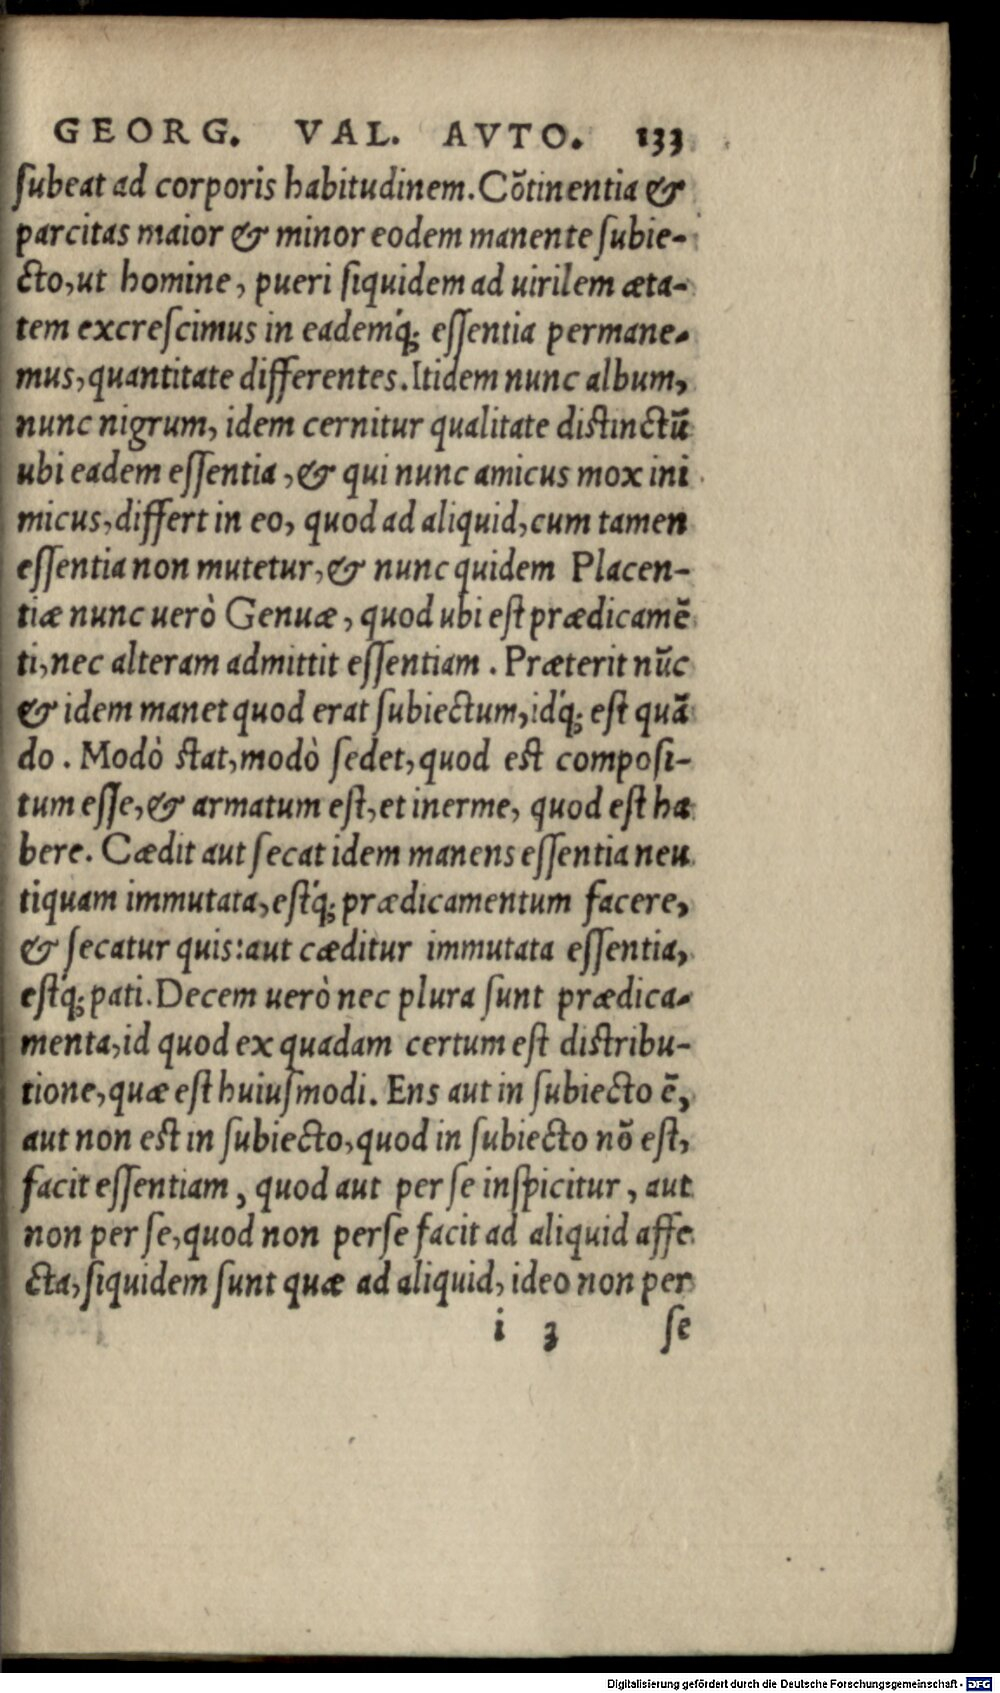 GEORG. VAL. AVTO. 133
ſubeat ad corporis habitudinem. Cõtinentia &
parcitas maior & minor eodem manente ſubie-
cto, ut homine, pueri ſiquidem ad uirilem æta-
tem excreſcimus in eademq́; eſſentia permane-
mus, quantitate differentes. Itidem nunc album,
nunc nigrum, idem cernitur qualitate diſtinctũ
ubi eadem eſſentia, & qui nunc amicus mox ini
micus, differt in eo, quod ad aliquid, cum tamen
eſſentia non mutetur, & nunc quidem Placen-
tiæ nunc uerò Genuæ, quod ubi eſt prædicamẽ
ti, nec alteram admittit eſſentiam. Præterit nũc
& idem manet quod erat ſubiectum, idq́; eſt quã
do. Modò ſtat, modò ſedet, quod eſt compoſi-
tum eſſe, & armatum eſt, et inerme, quod eſt ha
bere. Cædit aut ſecat idem manens eſſentia neu
tiquam immutata, eſtq́; prædicamentum facere,
& ſecatur quis: aut cæditur immutata eſſentia,
eſtq́; pati. Decem uerò nec plura ſunt prædica-
menta, id quod ex quadam certum eſt diſtribu-
tione, quæ eſt huiuſmodi. Ens aut in ſubiecto ẽ,
aut non eſt in ſubiecto, quod in ſubiecto nõ eſt,
facit eſſentiam, quod aut per ſe inſpicitur, aut
non per ſe, quod non perſe facit ad aliquid affe
cta, ſiquidem ſunt quæ ad aliquid, ideo non per
i 3 ſe
Digitalisierung gefördert durch die Deutsche Forschungsgemeinschaft - DFG